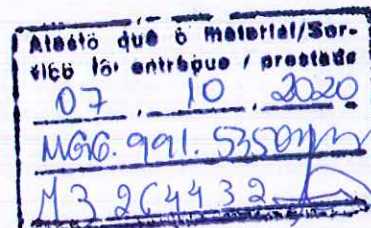 Atesto que o material/Ser-
viço foi entregue / prestado
07 , 10 , 2020
MG6. 991. 535
M3264432